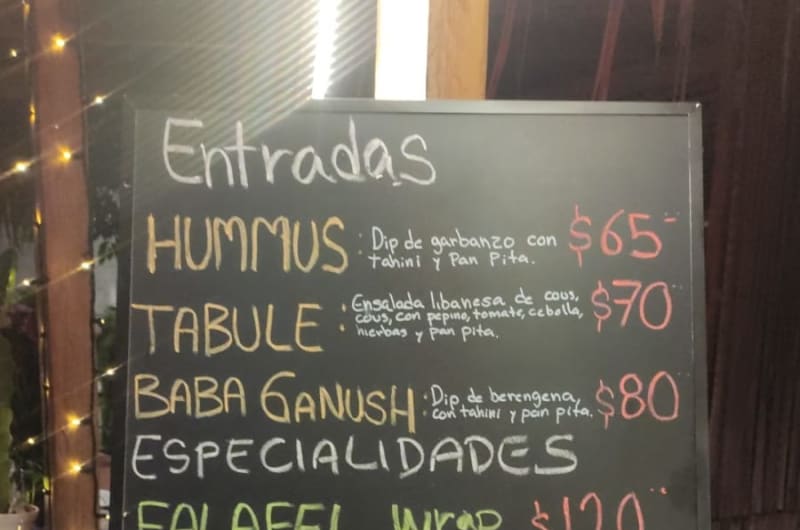 Entradas
HUMMUS : Dip de garbanzo con $65
tahini y Pan Pita.
TABULE : Ensalada libanesa de cous, $70
cous, con pepino, tomate, cebolla,
hierbas y pan pita.
BABA GANUSH : Dip de berengena, $80
con tahini y pan pita.
ESPECIALIDADES
FALAFEL Wrap $120